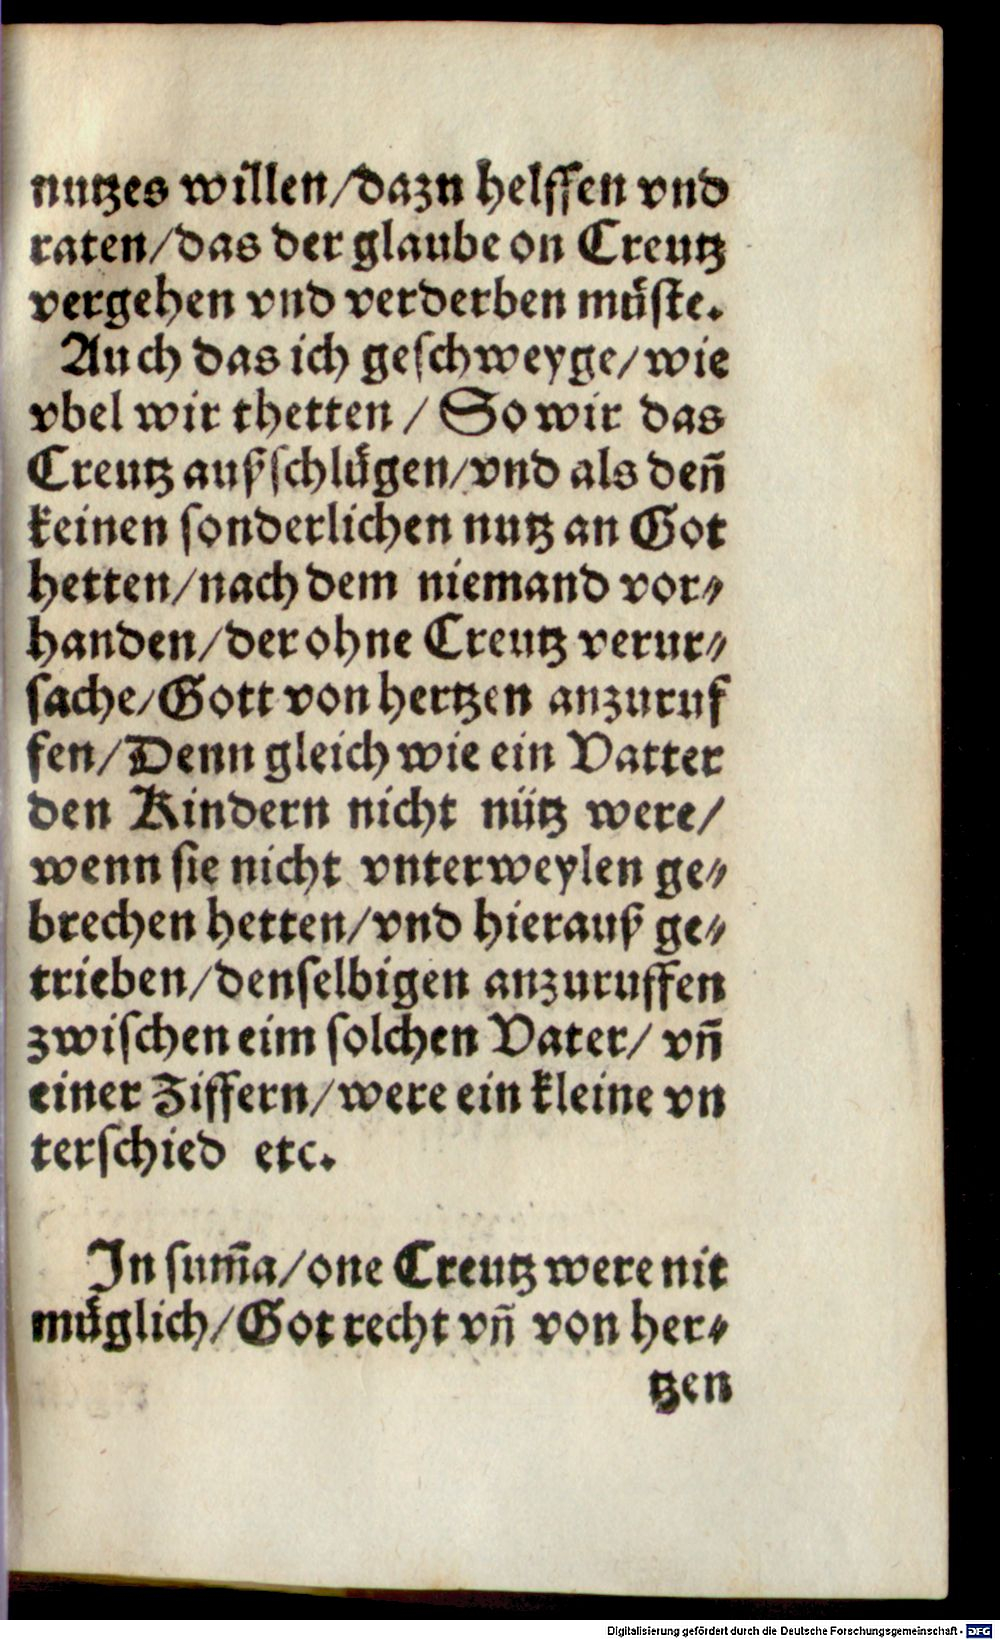 nutzes willen/dazn helffen vnd
raten/das der glaube on Creutz
vergehen vnd verderben muͤste.
Auch das ich geschweyge/wie
vbel wir thetten / So wir das
Creutz außschluͤgen/vnd als deñ
keinen sonderlichen nutz an Got
hetten/nach dem niemand vor⸗
handen/der ohne Creutz verur⸗
sache/Gott von hertzen anzuruf
fen/Denn gleich wie ein Vatter
den Kindern nicht nütz were/
wenn sie nicht vnterweylen ge⸗
brechen hetten/vnd hierauß ge⸗
trieben/denselbigen anzuruffen
zwischen eim solchen Vater/ vñ
einer Ziffern/were ein kleine vn
terschied etc.
In sum̃a/one Creutz were nit
muͤglich/Got recht vñ von her⸗
tzen
Digitalisierung gefördert durch die Deutsche Forschungsgemeinschaft - DFG